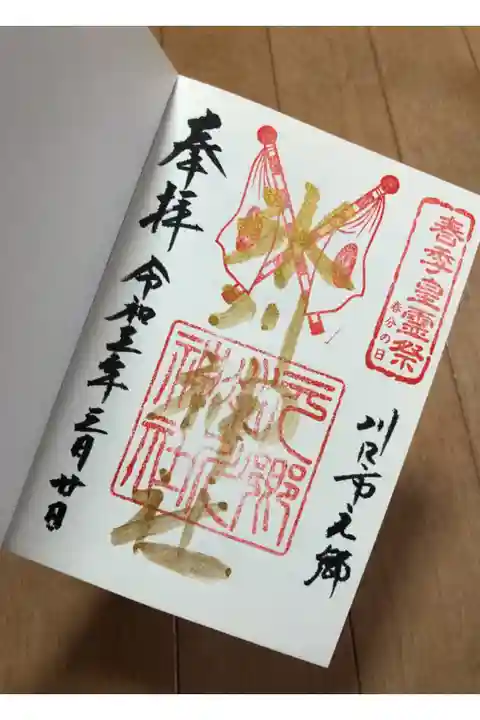 春季皇霊祭
春分の日
川口市元郷
氷川神社
元郷氷川神社
奉拝
令和三年三月廿日